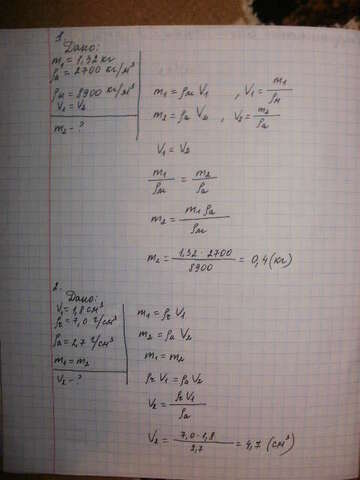 1
Дано:
m₁ = 1,32 кг
ρₐ = 2700 кг/м³
ρм = 8900 кг/м³
V₁ = V₂
m₂ - ?
m₁ = ρм V₁ , V₁ = m₁/ρм
m₂ = ρₐ V₂ , V₂ = m₂/ρₐ
V₁ = V₂
m₁/ρм = m₂/ρₐ
m₂ = m₁ρₐ/ρм
m₂ = 1,32 · 2700/8900 = 0,4 (кг)
2.
Дано:
V₁ = 1,8 см³
ρz = 7,0 г/см³
ρₐ = 2,7 г/см³
m₁ = m₂
V₂ - ?
m₁ = ρz V₁
m₂ = ρₐ V₂
m₁ = m₂
ρz V₁ = ρₐ V₂
V₂ = ρz V₁/ρₐ
V₂ = 7,0 · 1,8/2,7 = 4,7 (см³)